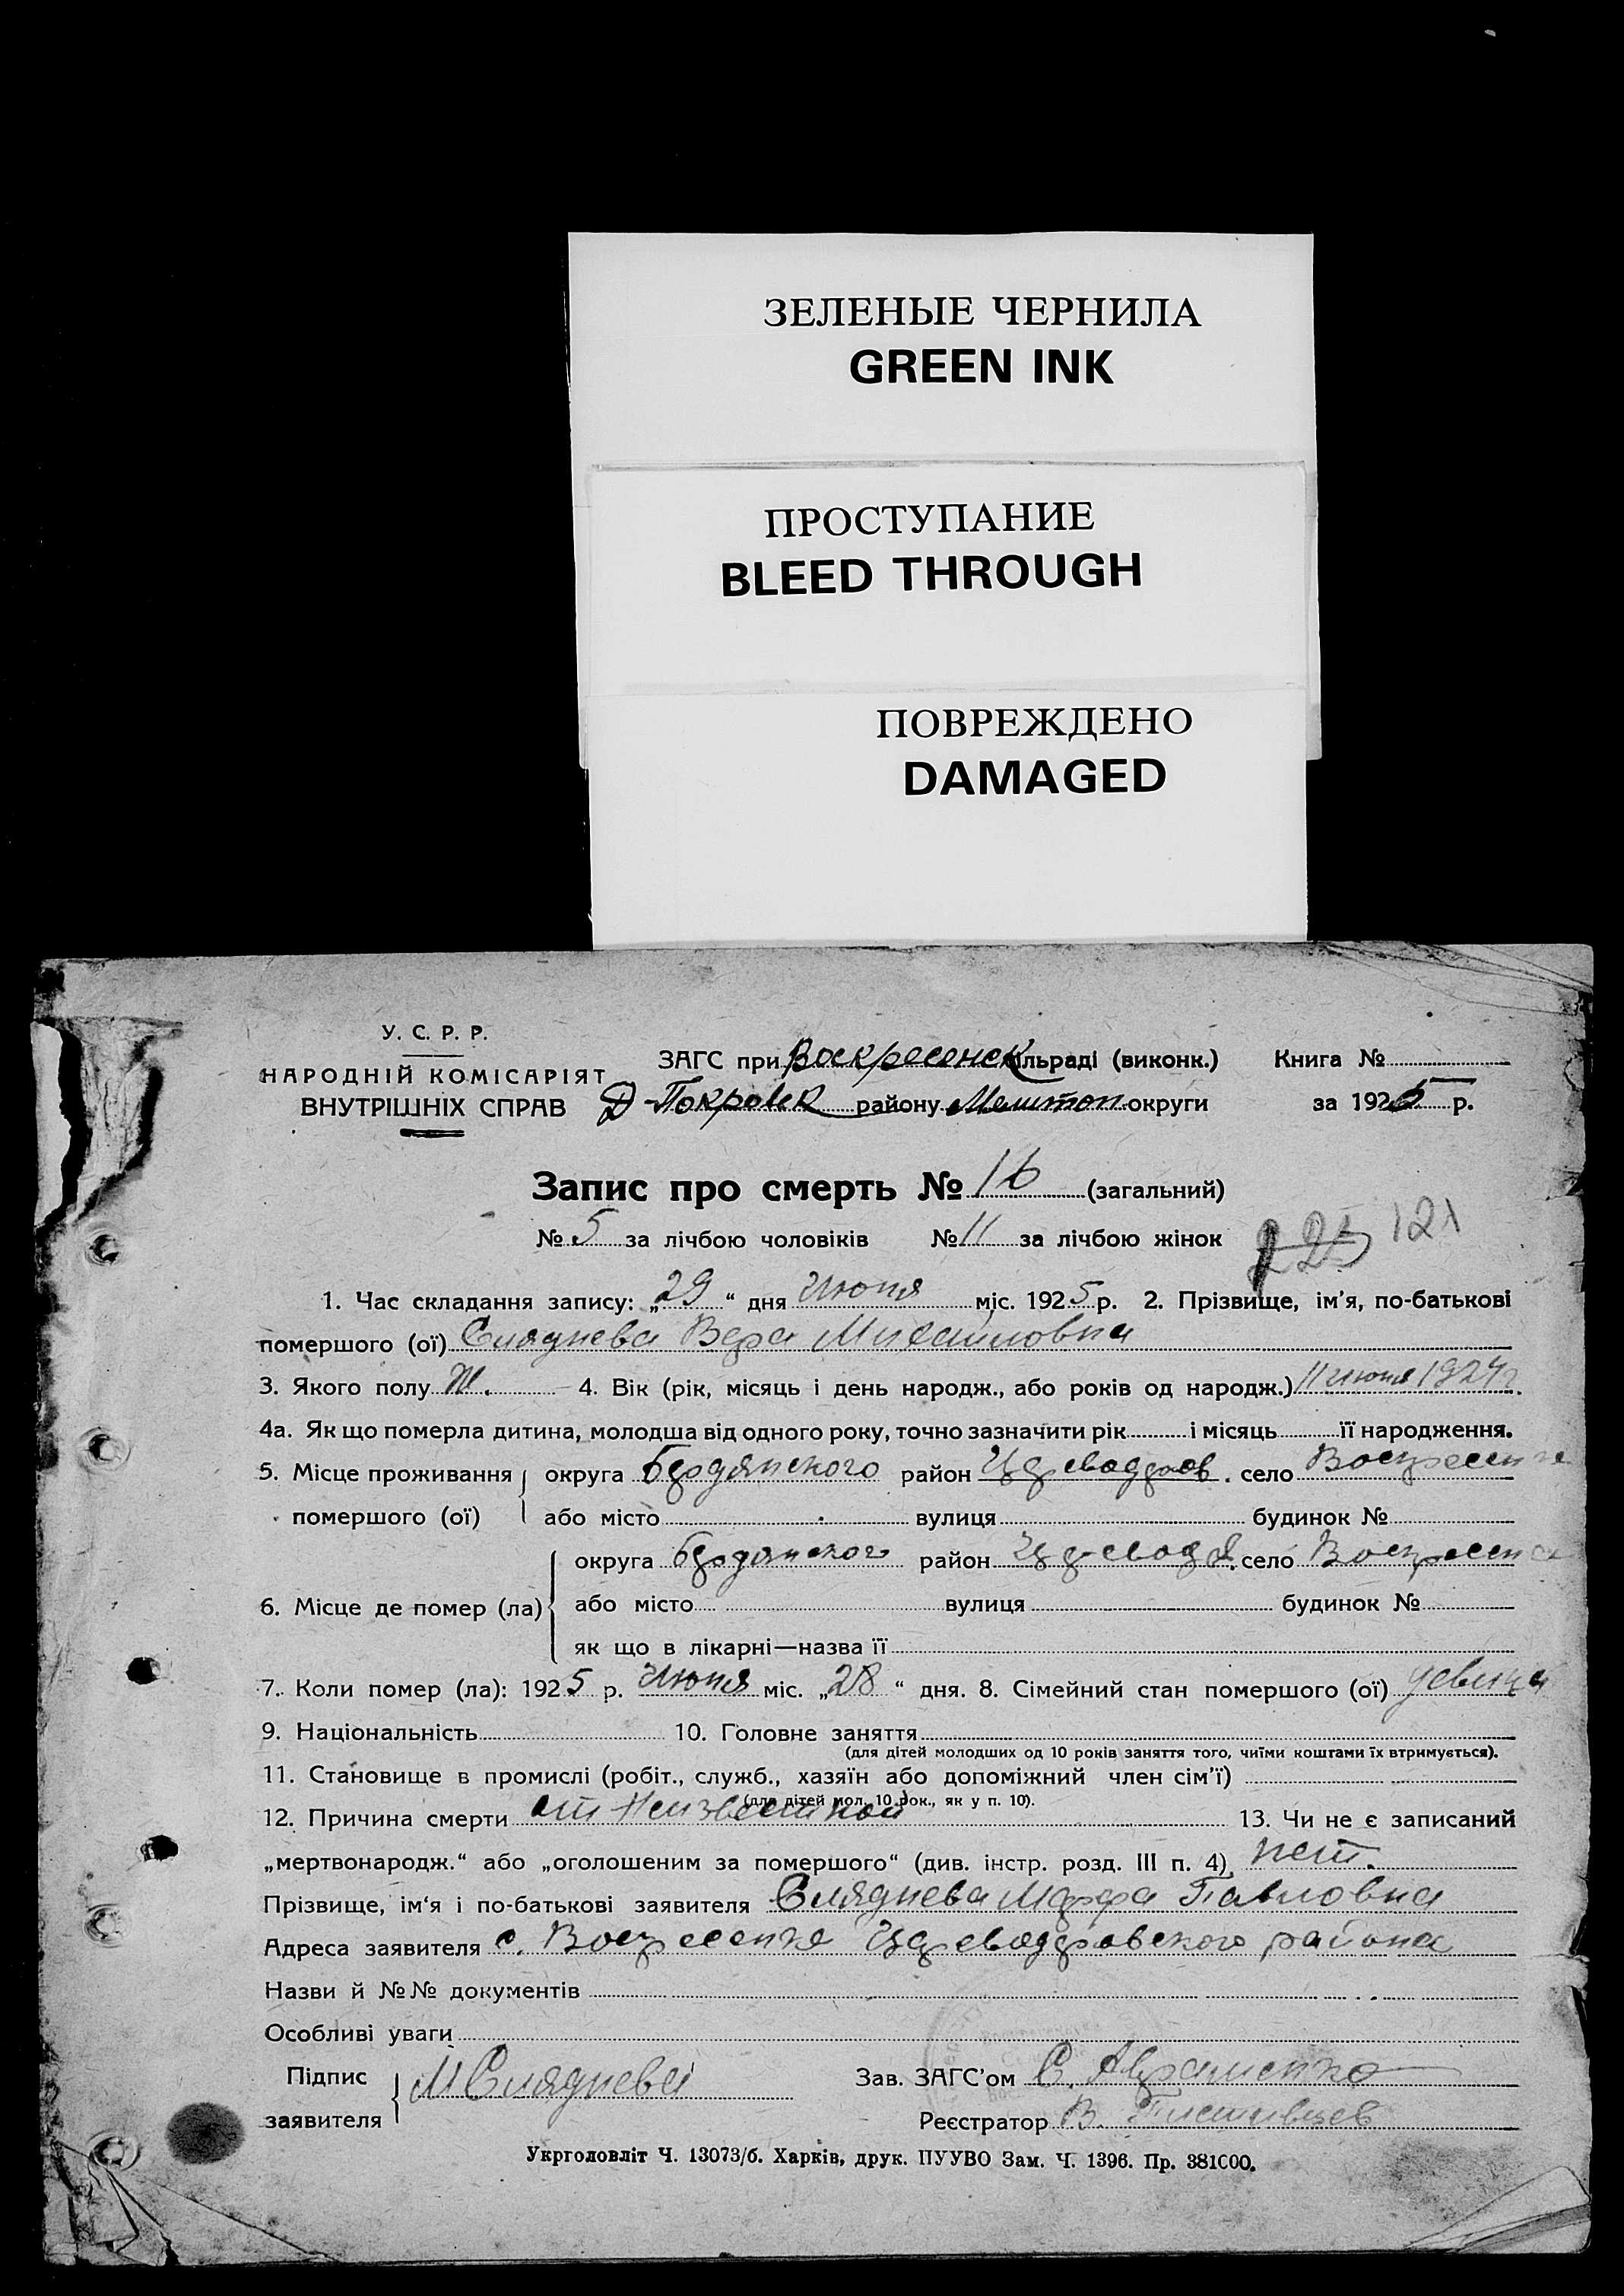 ЗЕЛЕНЫЕ ЧЕРНИЛА
GREEN INK
ПРОСТУПАНИЕ
BLEED THROUGH
ПОВРЕЖДЕНО
DAMAGED
У. С. Р. Р.
НАРОДНІЙ КОМІСАРІЯТ
ВНУТРІШНІХ СПРАВ
ЗАГС при Воскресенск ільраді (виконк.) Книга №
Д-Покровск району округи за 1925 р.
Запис про смерть № 16 (загальний)
№ 5 за лічбою чоловіків № 11 за лічбою жінок 121
1. Час складання запису: „29“ дня Июня міс. 1925 р. 2. Прізвище, ім’я, по-батькові
помершого (ої) Сляднева Вера Михайловна
3. Якого полу Ж. 4. Вік (рік, місяць і день народж., або років од народж.) 11 июня 1924 г.
4а. Як що померла дитина, молодша від одного року, точно зазначити рік і місяць її народження.
5. Місце проживання округа Бердянского район село
помершого (ої) або місто вулиця будинок №
округа Бердянского район село
6. Місце де помер (ла) або місто вулиця будинок №
як що в лікарні—назва її
7. Коли помер (ла): 1925 р. Июня міс. „28“ дня. 8. Сімейний стан помершого (ої) девица
9. Національність 10. Головне заняття
(для дітей молодших од 10 років заняття того, чиїми коштами їх втримується).
11. Становище в промислі (робіт., служб., хазяїн або допоміжний член сім’ї)
(для дітей мол. 10 рок., як у п. 10).
12. Причина смерти от Неизвестной 13. Чи не є записаний
„мертвонародж.“ або „оголошеним за помершого“ (див. інстр. розд. III п. 4) нет.
Прізвище, ім‘я і по-батькові заявителя Сляднева Марфа Павловна
Адреса заявителя с. района
Назви й №№ документів
Особливі уваги
Підпис М Сляднева Зав. ЗАГС’ом С. Авраменко
заявителя Реєстратор В.
Укрголовліт Ч. 13073/б. Харків, друк. ПУУВО Зам. Ч. 1396. Пр. 381000.